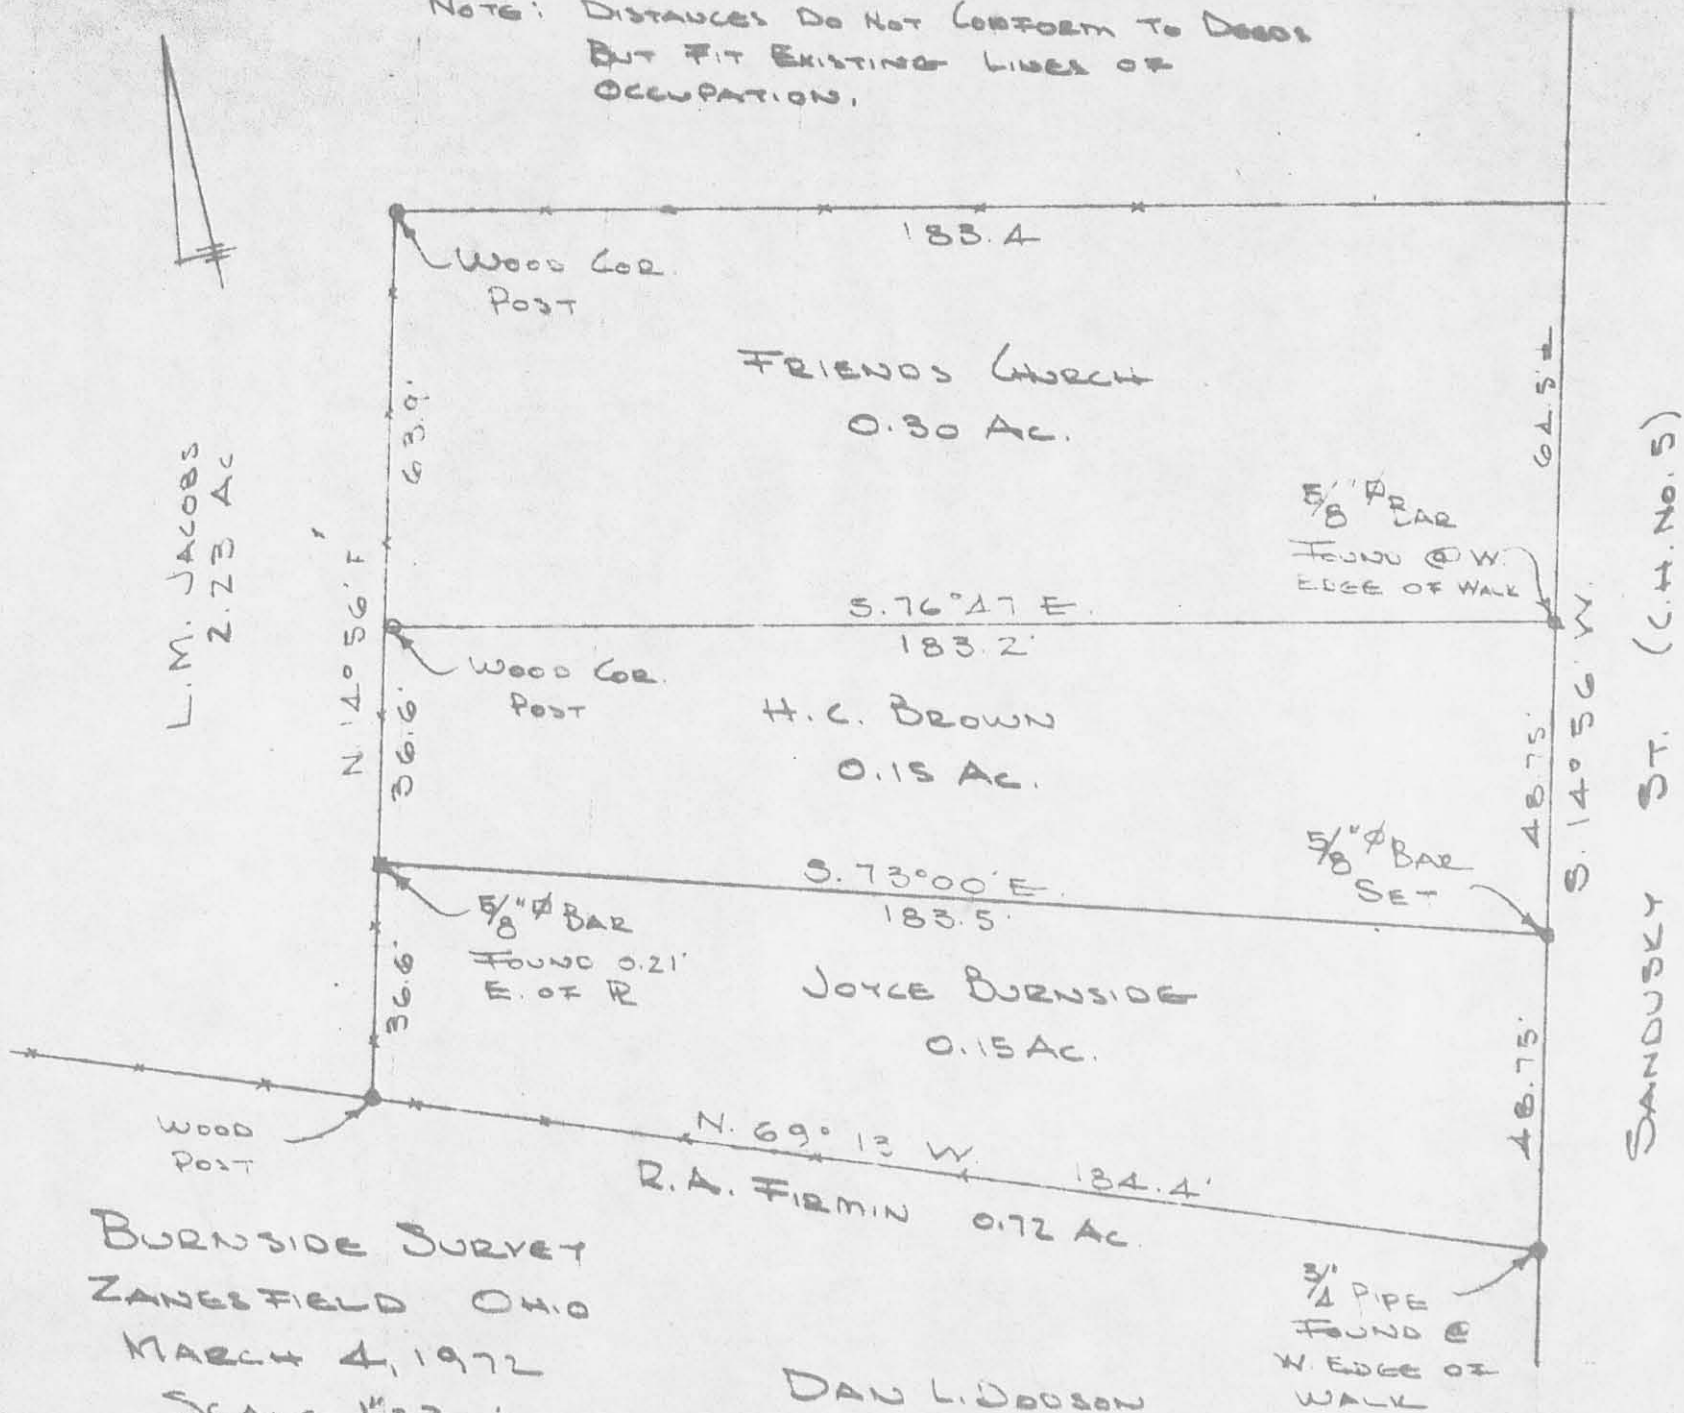 NOTE: DISTANCES DO NOT CONFORM TO DEEDS
BUT FIT EXISTING LINES OF
OCCUPATION.
183.4
WOOD COR.
POST
FRIENDS CHURCH
0.30 AC.
63.9'
64.5'±
L.M. JACOBS
2.23 AC
N. 14° 56' E
5/8" Ø BAR
FOUND @ W.
EDGE OF WALK
S. 76° 47' E.
183.2'
WOOD COR.
POST
H.C. BROWN
0.15 AC.
36.6'
48.75'
S. 14° 56' W.
SANDUSKY ST. (C.H. NO. 5)
5/8" Ø BAR
SET
S. 73° 00' E.
183.5'
5/8" Ø BAR
FOUND 0.21'
E. OF PL
JOYCE BURNSIDE
0.15 AC.
36.6'
48.75'
WOOD
POST
N. 69° 13' W. 184.4'
R.A. FIRMIN 0.72 AC.
3/4" PIPE
FOUND @
W. EDGE OF
WALK
BURNSIDE SURVEY
ZANESFIELD OHIO
MARCH 4, 1972
SCALE
DAN L. DODSON